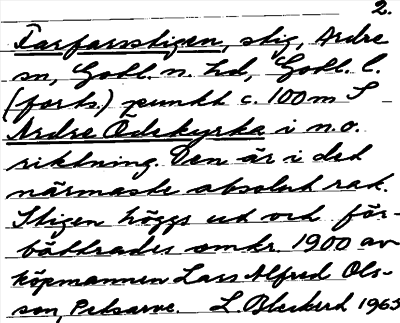 2.
Farfarsstigen, stig, Ardre
sn, Gotl. n. hd, Gotl. l.
(forts.) punkt c. 100 m S
Ardre Ödekyrka i n.o.
riktning. Den är i det
närmaste absolut rak.
Stigen höggs ut och för-
bättrades omkr. 1900 av
köpmannen Lars Alfred Ols-
son, Petsarve. 1963